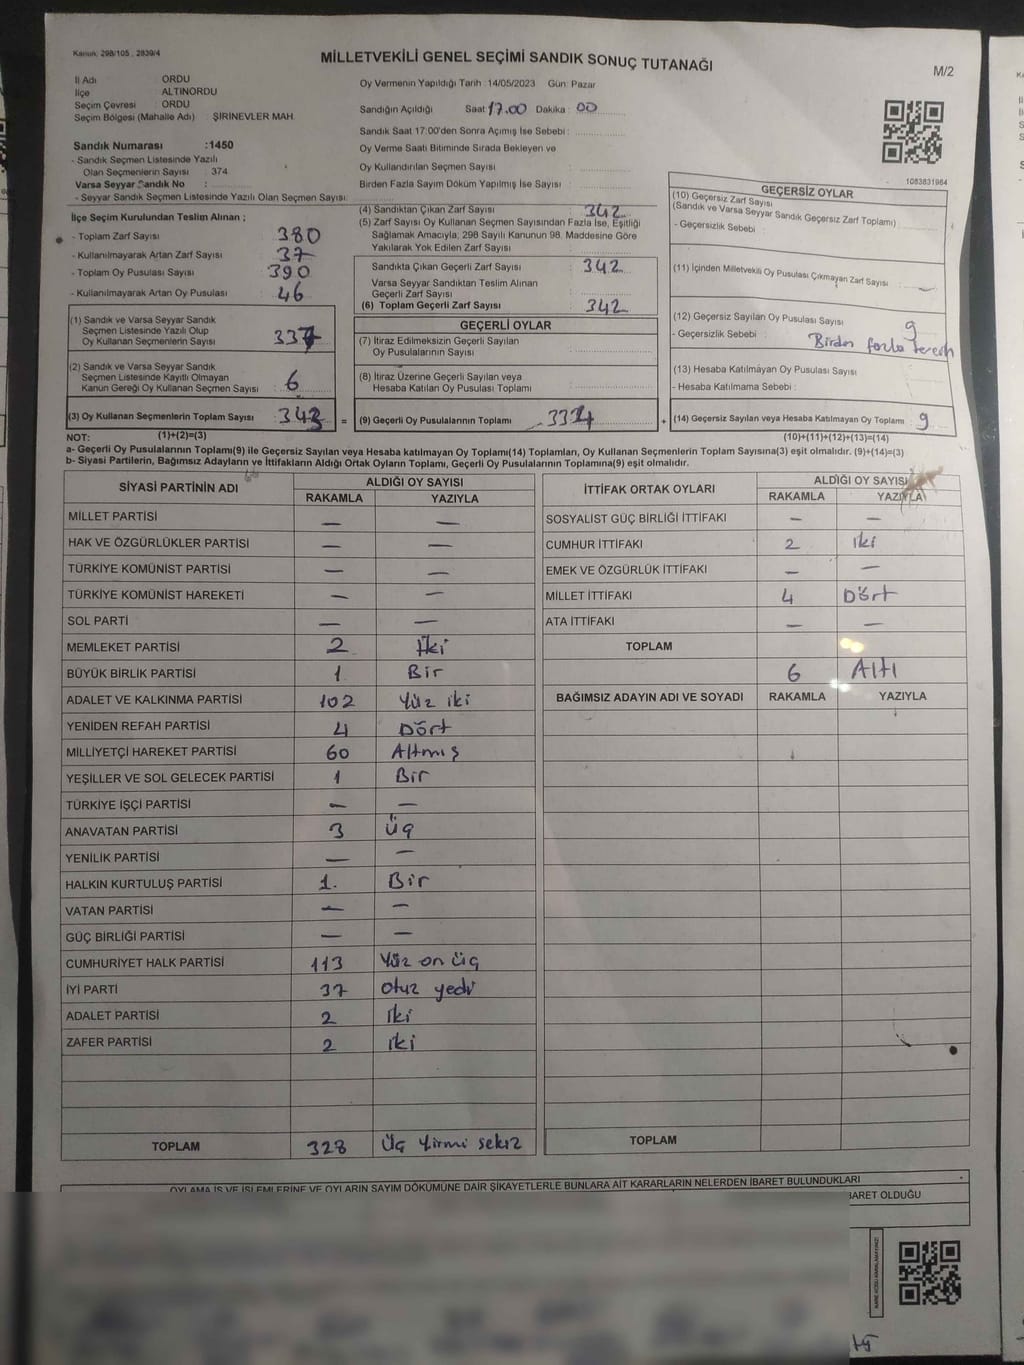 Kanun: 298/105 , 2839/4
MİLLETVEKİLİ GENEL SEÇİMİ SANDIK SONUÇ TUTANAĞI
M/2
İl Adı : ORDU
İlçe : ALTINORDU
Seçim Çevresi : ORDU
Seçim Bölgesi (Mahalle Adı) : ŞİRİNEVLER MAH.
Sandık Numarası :1450
- Sandık Seçmen Listesinde Yazılı
Olan Seçmenlerin Sayısı : 374
Varsa Seyyar Sandık No :
- Seyyar Sandık Seçmen Listesinde Yazılı Olan Seçmen Sayısı:
Oy Vermenin Yapıldığı Tarih : 14/05/2023 Gün: Pazar
Sandığın Açıldığı Saat: 17.00 Dakika : 00
Sandık Saat 17:00'den Sonra Açımış İse Sebebi :
Oy Verme Saati Bitiminde Sırada Bekleyen ve
Oy Kullandırılan Seçmen Sayısı :
Birden Fazla Sayım Döküm Yapılmış İse Sayısı :
1083831984
İlçe Seçim Kurulundan Teslim Alınan ;
- Toplam Zarf Sayısı : 380
- Kullanılmayarak Artan Zarf Sayısı : 37
- Toplam Oy Pusulası Sayısı : 390
- Kullanılmayarak Artan Oy Pusulası : 46
(1) Sandık ve Varsa Seyyar Sandık
Seçmen Listesinde Yazılı Olup
Oy Kullanan Seçmenlerin Sayısı : 337
(2) Sandık ve Varsa Seyyar Sandık
Seçmen Listesinde Kayıtlı Olmayan
Kanun Gereği Oy Kullanan Seçmen Sayısı : 6
(3) Oy Kullanan Seçmenlerin Toplam Sayısı : 343
(1)+(2)=(3)
(4) Sandıktan Çıkan Zarf Sayısı : 342
(5) Zarf Sayısı Oy Kullanan Seçmen Sayısından Fazla İse, Eşitliği
Sağlamak Amacıyla; 298 Sayılı Kanunun 98. Maddesine Göre
Yakılarak Yok Edilen Zarf Sayısı :
Sandıkta Çıkan Geçerli Zarf Sayısı : 342
Varsa Seyyar Sandıktan Teslim Alınan
Geçerli Zarf Sayısı :
(6) Toplam Geçerli Zarf Sayısı : 342
GEÇERLİ OYLAR
(7) İtiraz Edilmeksizin Geçerli Sayılan
Oy Pusulalarının Sayısı :
(8) İtiraz Üzerine Geçerli Sayılan veya
Hesaba Katılan Oy Pusulası Toplamı :
= (9) Geçerli Oy Pusulalarının Toplamı : 334
GEÇERSİZ OYLAR
(10) Geçersiz Zarf Sayısı
(Sandık ve Varsa Seyyar Sandık Geçersiz Zarf Toplamı) :
- Geçersizlik Sebebi :
(11) İçinden Milletvekili Oy Pusulası Çıkmayan Zarf Sayısı :
(12) Geçersiz Sayılan Oy Pusulası Sayısı : 9
- Geçersizlik Sebebi : Birden fazla tercih
(13) Hesaba Katılmayan Oy Pusulası Sayısı :
- Hesaba Katılmama Sebebi :
+ (14) Geçersiz Sayılan veya Hesaba Katılmayan Oy Toplamı : 9
(10)+(11)+(12)+(13)=(14)
NOT:
a- Geçerli Oy Pusulalarının Toplamı(9) ile Geçersiz Sayılan veya Hesaba katılmayan Oy Toplamı(14) Toplamları, Oy Kullanan Seçmenlerin Toplam Sayısına(3) eşit olmalıdır. (9)+(14)=(3)
b- Siyasi Partilerin, Bağımsız Adayların ve İttifakların Aldığı Ortak Oyların Toplamı, Geçerli Oy Pusulalarının Toplamına(9) eşit olmalıdır.
SİYASİ PARTİNİN ADI ALDIĞI OY SAYISI
RAKAMLA YAZIYLA
MİLLET PARTİSİ — —
HAK VE ÖZGÜRLÜKLER PARTİSİ — —
TÜRKİYE KOMÜNİST PARTİSİ — —
TÜRKİYE KOMÜNİST HAREKETİ — —
SOL PARTİ — —
MEMLEKET PARTİSİ 2 İki
BÜYÜK BİRLİK PARTİSİ 1 Bir
ADALET VE KALKINMA PARTİSİ 102 Yüz iki
YENİDEN REFAH PARTİSİ 4 Dört
MİLLİYETÇİ HAREKET PARTİSİ 60 Altmış
YEŞİLLER VE SOL GELECEK PARTİSİ 1 Bir
TÜRKİYE İŞÇİ PARTİSİ — —
ANAVATAN PARTİSİ 3 Üç
YENİLİK PARTİSİ — —
HALKIN KURTULUŞ PARTİSİ 1. Bir
VATAN PARTİSİ — —
GÜÇ BİRLİĞİ PARTİSİ — —
CUMHURİYET HALK PARTİSİ 113 Yüz on üç
İYİ PARTİ 37 otuz yedi
ADALET PARTİSİ 2 İki
ZAFER PARTİSİ 2 iki
TOPLAM 328 Üç Yirmi sekiz
İTTİFAK ORTAK OYLARI ALDIĞI OY SAYISI
RAKAMLA YAZIYLA
SOSYALİST GÜÇ BİRLİĞİ İTTİFAKI — —
CUMHUR İTTİFAKI 2 iki
EMEK VE ÖZGÜRLÜK İTTİFAKI — —
MİLLET İTTİFAKI 4 Dört
ATA İTTİFAKI — —
TOPLAM 6 Altı
BAĞIMSIZ ADAYIN ADI VE SOYADI RAKAMLA YAZIYLA
TOPLAM
OYLAMA İŞ VE İŞLEMLERİNE VE OYLARIN SAYIM DÖKÜMÜNE DAİR ŞİKAYETLERLE BUNLARA AİT KARARLARIN NELERDEN İBARET BULUNDUKLARI
BARET OLDUĞU